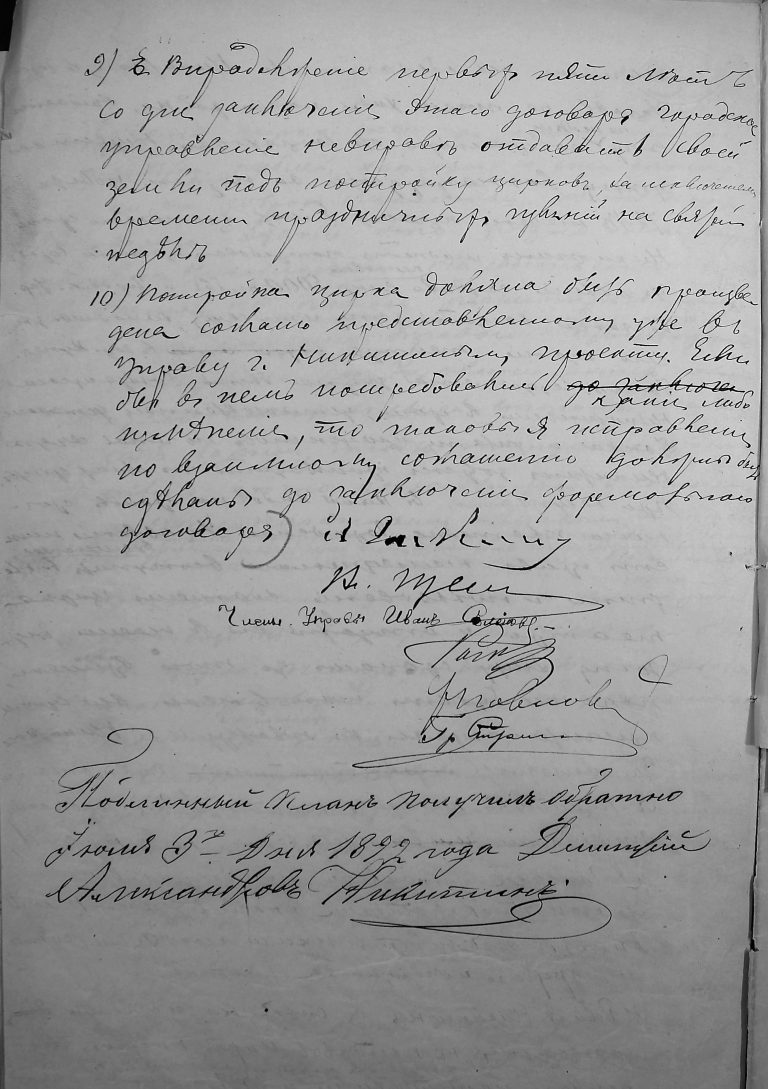 9) В продолженіе первыхъ пяти лѣтъ
со дня заключенія этого договора городское
управленіе невправѣ отдавать своей
земли подъ постройку цирковъ, за исключеніем
времени праздничныхъ гуляній на святой
недѣлѣ
10) Постройка цирка должна быть произве
дена согласно представленному уже въ
управу г. Никитинымъ проекту. Если
бы въ немъ потребовались до заключ
какія либо
измѣненія, то таковыя исправленія
по взаимному соглашенію должны быть
сдѣланы до заключенія формальнаго
договора)
Члены Управы Иванъ
Павловъ
Гр.
Подлинный планъ получилъ обратно
Іюля 3го дня 1892 года Дмитрій
Александровъ Никитинъ.